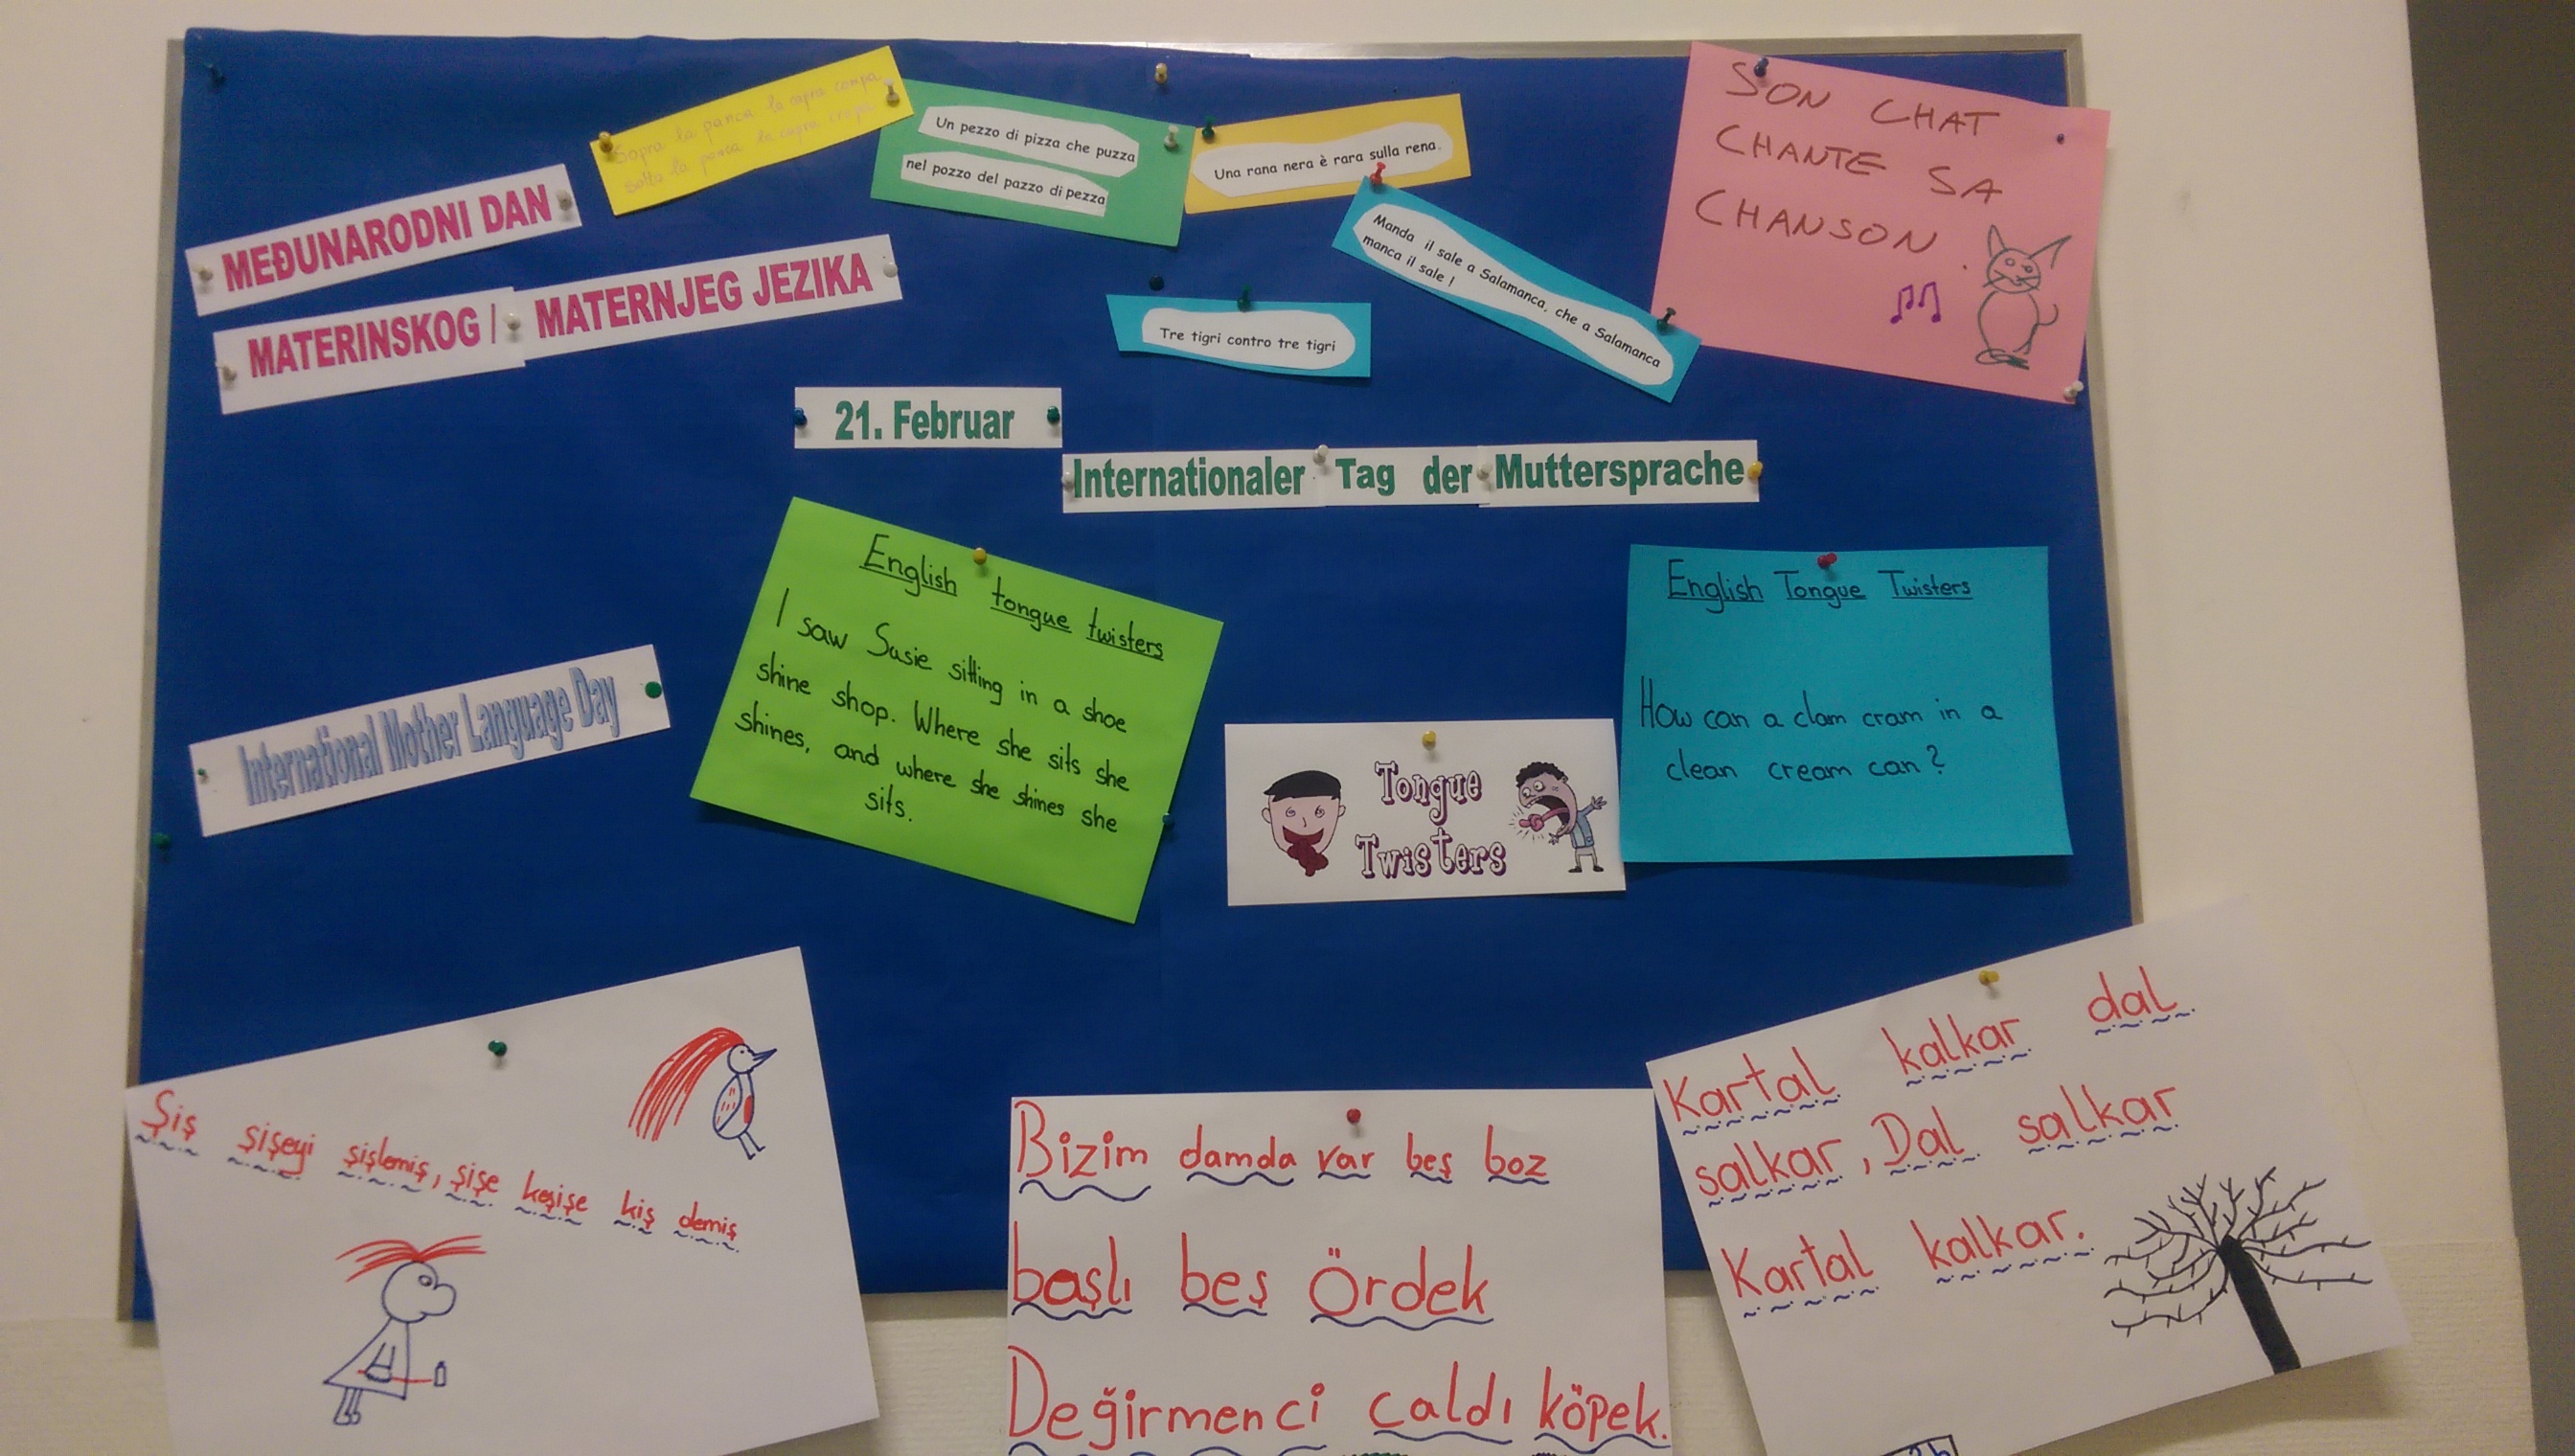 Sopra la panca la capra campa
sotto la panca la capra crepa
Un pezzo di pizza che puzza
nel pozzo del pazzo di pezza
Una rana nera è rara sulla rena.
Manda il sale a Salamanca, che a Salamanca
manca il sale !
Tre tigri contro tre tigri
SON CHAT
CHANTE SA
CHANSON.
MEĐUNARODNI DAN
MATERINSKOG / MATERNJEG JEZIKA
21. Februar
Internationaler Tag der Muttersprache
International Mother Language Day
English tongue twisters
I saw Susie sitting in a shoe
shine shop. Where she sits she
shines, and where she shines she
sits.
Tongue
Twisters
English Tongue Twisters
How can a clam cram in a
clean cream can?
Şiş şişeyi şişlemiş, şişe keşişe kiş demiş
Bizim damda var beş boz
başlı beş Ördek
Değirmenci caldı köpek.
Kartal kalkar dal
salkar, Dal salkar
Kartal kalkar.